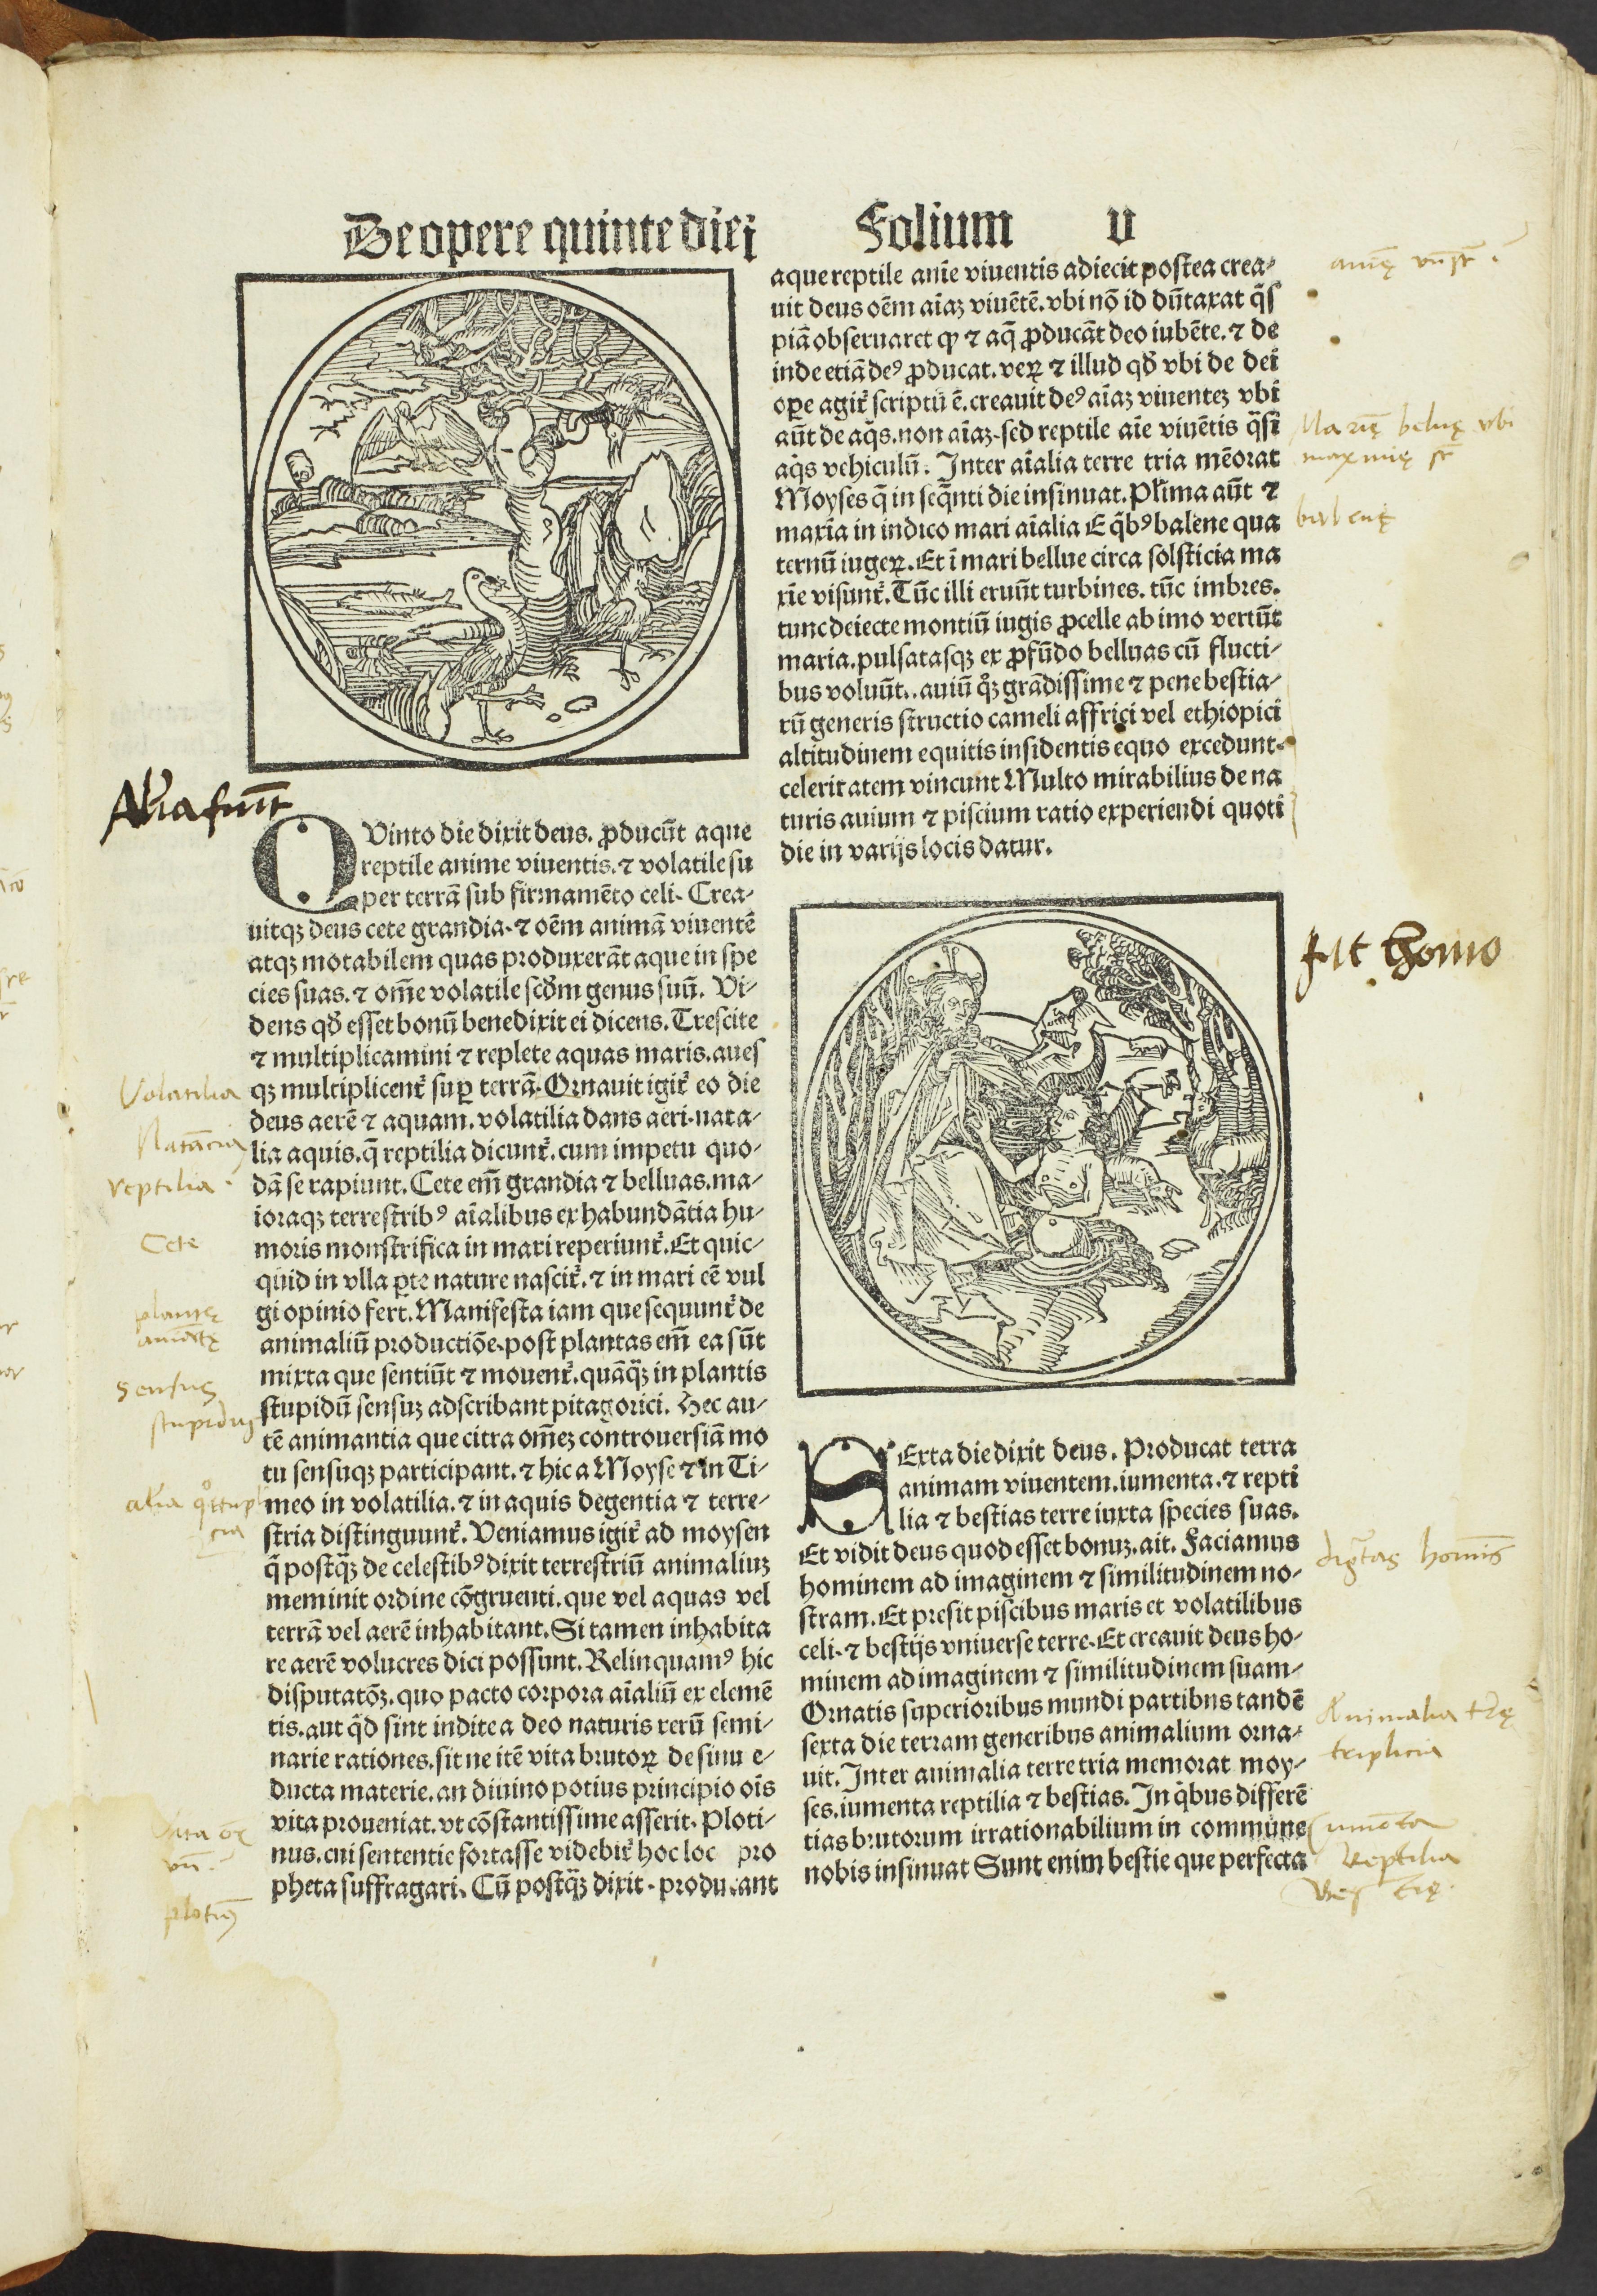 De opere quinte diei
Folium V
Alia fiūt
QVinto die dixit deus. ꝓducūt aque
reptile anime viuentis. ⁊ volatile su
per terrā sub firmamēto celi. Crea-
uitqꝫ deus cete grandia. ⁊ oēm animā viuentē
atqꝫ motabilem quas produxerāt aque in spe
cies suas. ⁊ om̄e volatile scḋm genus suū. Vi-
dens qḋ esset bonū benedixit ei dicens. Crescite
⁊ multiplicamini ⁊ replete aquas maris. aues
qꝫ multiplicent᷑ suꝑ terrā. Ornauit igit᷑ eo die
deus aerē ⁊ aquam. volatilia dans aeri. nata-
lia aquis. q̄ reptilia dicunt᷑. cum impetu quo-
dā se rapiunt. Cete em̄ grandia ⁊ belluas. ma-
ioraqꝫ terrestribꝰ aīalibus ex habundātia hu-
moris monstrifica in mari reperiunt᷑. Et quic-
quid in vlla ꝑte nature nascit᷑. ⁊ in mari eē vul
gi opinio fert. Manifesta iam que sequunt᷑ de
animaliū productiōe. post plantas em̄ ea sūt
mixta que sentiūt ⁊ mouent᷑. quāq̄ꝫ in plantis
stupidū sensuꝫ adscribant pitagorici. Hec au-
tē animantia que citra om̄eꝫ controuersiā mo
tu sensuqꝫ participant. ⁊ hic a Moyse ⁊ in Ti-
meo in volatilia. ⁊ in aquis degentia ⁊ terre-
stria distinguunt᷑. Veniamus igit᷑ ad moysen
q̄ postq̄ꝫ de celestibꝰ dixit terrestriū animaliuꝫ
meminit ordine cōgruenti. que vel aquas vel
terrā vel aerē inhabitant. Si tamen inhabita
re aerē volucres dici possunt. Relinquamꝰ hic
disputatōꝫ. quo pacto corpora aīaliū ex elemē
tis. aut qd̄ sint indite a deo naturis rerū semi-
narie rationes. sit ne itē vita brutoꝝ de sinu e-
ducta materie. an diuino potius principio oīs
vita proueniat. vt cōstantissime asserit. Ploti-
nus. cui sententie fortasse videbit᷑ hoc loc pro
pheta suffragari. Cū postq̄ꝫ dixit. producant
Volatilia
Natācia
reptilia
Cete
plantę
animatę
sensus
stupidus
plotinꝰ
aque reptile anīe viuentis adiecit postea crea-
uit deus oēm aīaꝫ viuētē. vbi nō id dūtaxat q̄s
piā obseruaret ꝙ ⁊ aq̄ ꝓducāt deo iubēte. ⁊ de
inde etiā deꝰ ꝓducat. veꝝ ⁊ illud qḋ vbi de dei
oꝑe agit᷑ scriptū ē. creauit deꝰ aīaꝫ viuenteꝫ vbi
aūt de aq̄s. non aīaꝫ. sed reptile aīe viuētis q̄si
aq̄s vehiculū. Inter aīalia terre tria mēorat
Moyses q̄ in seq̄nti die insinuat. Plīma aūt ⁊
maxīa in indico mari aīalia E q̄bꝰ balene qua
ternū iugeꝝ. Et ī mari bellue circa solsticia ma
xīe visunt᷑. Tūc illi eruūt turbines. tūc imbres.
tunc deiecte montiū iugis ꝓcelle ab imo vertūt
maria. pulsatasqꝫ ex ꝓfūdo belluas cū flucti-
bus voluūt.. auiū q̊ꝫ grādissime ⁊ pene bestia-
rū generis structio cameli affrici vel ethiopici
altitudinem equitis insidentis equo excedunt.
celeritatem vincunt Multo mirabilius de na
turis auium ⁊ piscium ratio experiendi quoti
die in varijs locis datur.
Marię beluę vbi
maximę st̄
balenę
fit homo
SExta die dixit deus. Producat terra
animam viuentem. iumenta. ⁊ repti
lia ⁊ bestias terre iuxta species suas.
Et vidit deus quod esset bonuꝫ. ait. Faciamus
hominem ad imaginem ⁊ similitudinem no-
stram. Et presit piscibus maris et volatilibus
celi. ⁊ bestijs vniuerse terre. Et creauit deus ho-
minem ad imaginem ⁊ similitudinem suam.
Ornatis superioribus mundi partibus tandē
sexta die terram generibus animalium orna-
uit. Inter animalia terre tria memorat moy-
ses. iumenta reptilia ⁊ bestias. In q̄bus differē
tias brutorum irrationabilium in commune
nobis insinuat Sunt enim bestie que perfecta
dignitas hominis
Animalia trę
triplicia
iumēta
Reptilia
Bestię